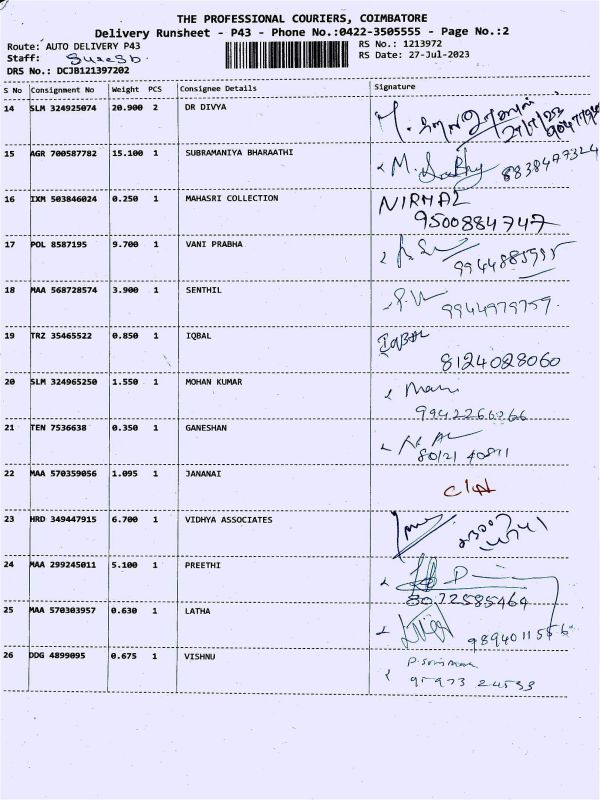 THE PROFESSIONAL COURIERS, COIMBATORE
Delivery Runsheet - P43 - Phone No.:0422-3505555 - Page No.:2
Route: AUTO DELIVERY P43 RS No.: 1213972
Staff: RS Date: 27-Jul-2023
DRS No.: DCJB121397202
S No Consignment No Weight PCS Consignee Details Signature
14 SLM 324925074 20.900 2 DR DIVYA 27/7/23
15 AGR 700587782 15.100 1 SUBRAMANIYA BHARAATHI 8838477324
16 IXM 503846024 0.250 1 MAHASRI COLLECTION NIRMAL
9500884747
17 POL 8587195 9.700 1 VANI PRABHA
9944885995
18 MAA 568728574 3.900 1 SENTHIL 9944979759
19 TRZ 35465522 0.850 1 IQBAL IQBAL
8124028060
20 SLM 324965250 1.550 1 MOHAN KUMAR Mani
9942266266
21 TEN 7536638 0.350 1 GANESHAN
80121 40871
22 MAA 570359056 1.095 1 JANANAI
23 HRD 349447915 6.700 1 VIDHYA ASSOCIATES
24 MAA 299245011 5.100 1 PREETHI
8072585464
25 MAA 570303957 0.630 1 LATHA 9894011556
26 DDG 4899095 0.675 1 VISHNU
95973 24533